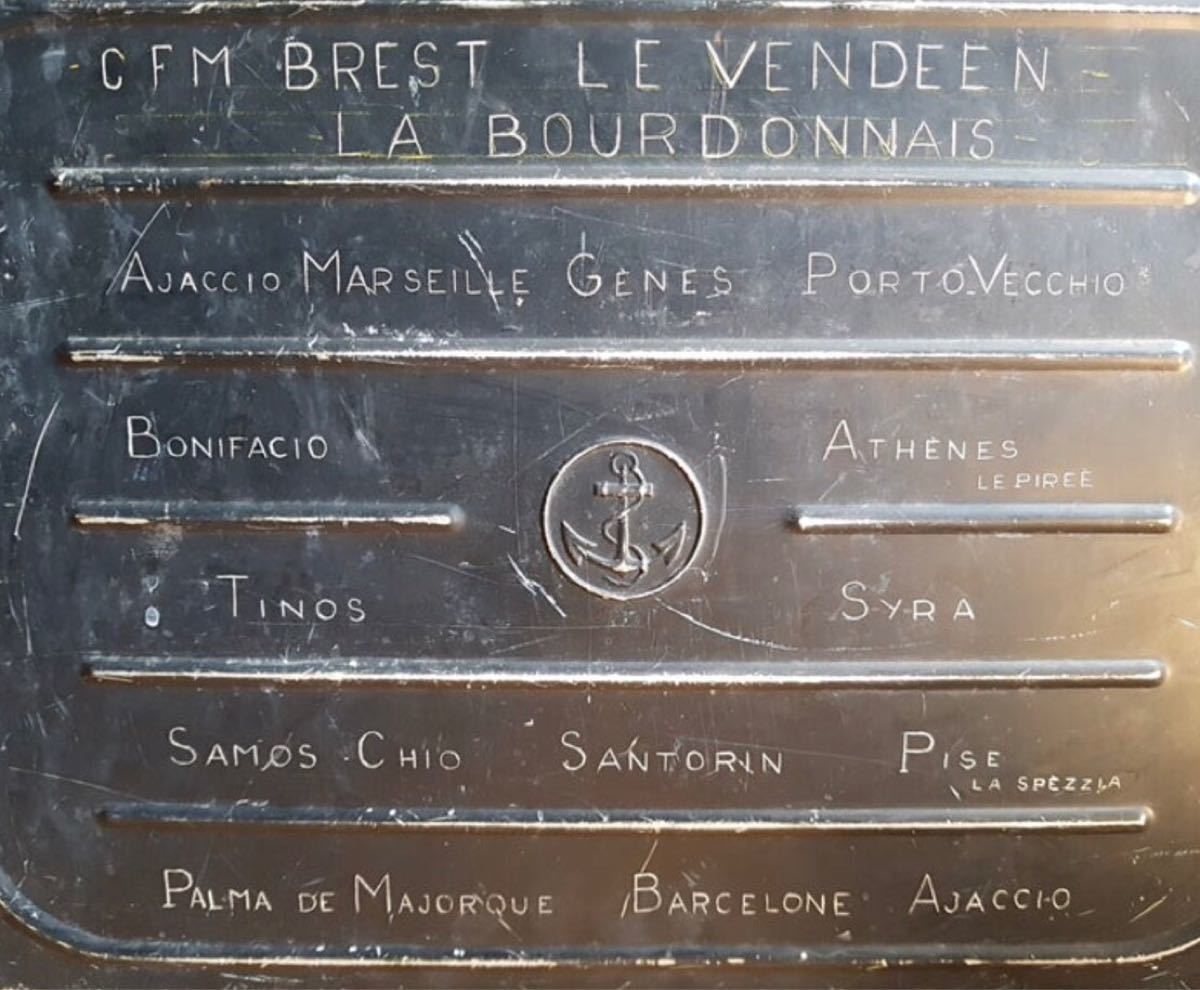 CFM BREST LE VENDEEN
LA BOURDONNAIS
AJACCIO MARSEILLE GÈNES PORTO-VECCHIO
BONIFACIO ATHÈNES
LE PIREE
TINOS SYRA
SAMOS CHIO SANTORIN PISE
LA SPEZZIA
PALMA DE MAJORQUE BARCELONE AJACCIO